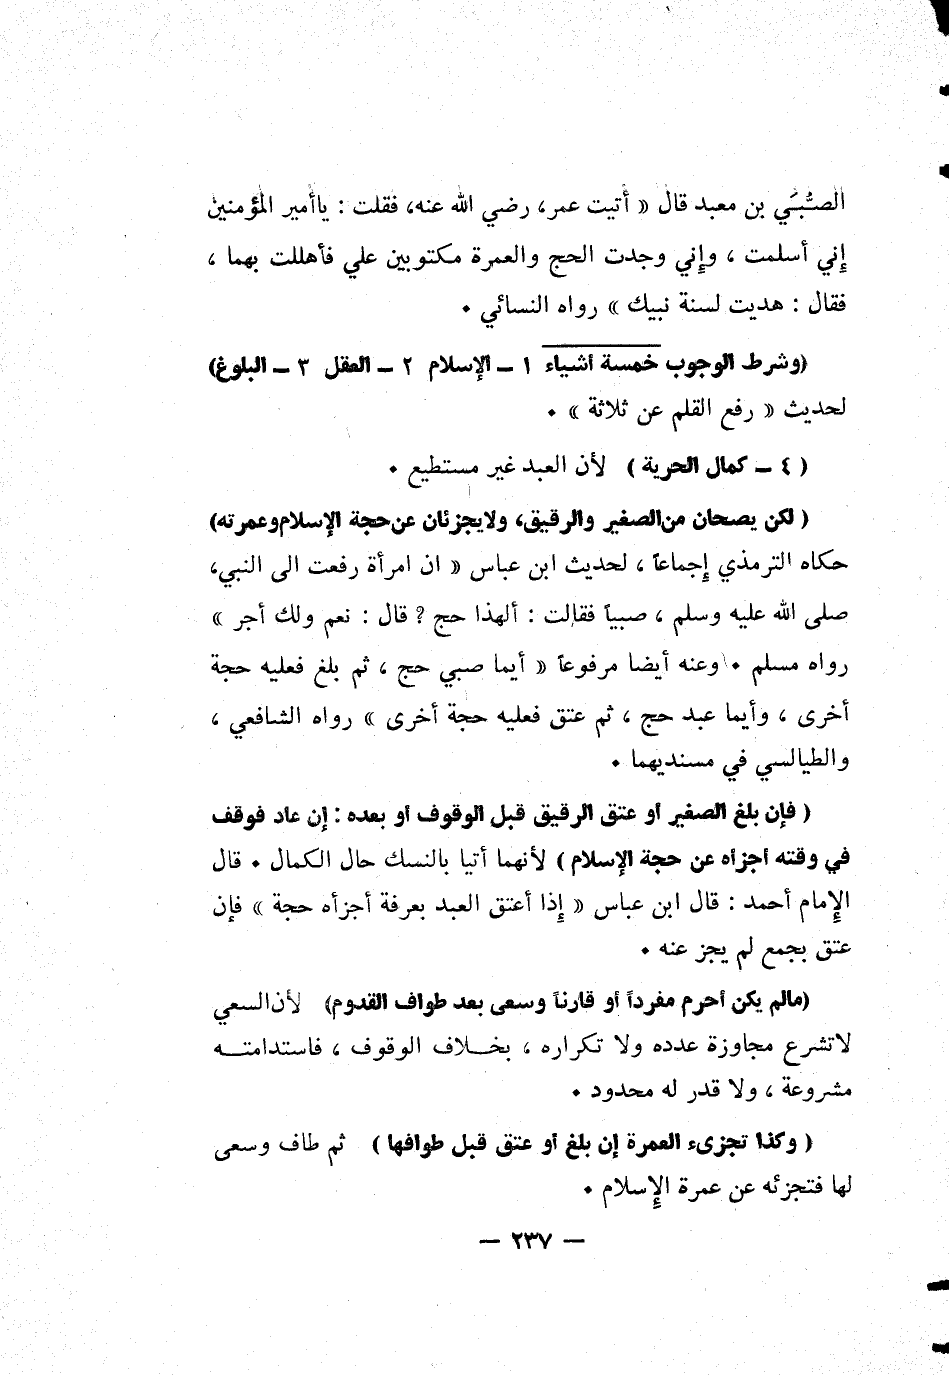 الصُّبَي بن معبد قال « أتيت عمر، رضي الله عنه، فقلت : ياأمير المؤمنين
إني أسلمت ، وإني وجدت الحج والعمرة مكتوبين علي فأهللت بهما ،
فقال : هديت لسنة نبيك » رواه النسائي .
(وشرط الوجوب خمسة أشياء ١ – الإسلام ٢ – العقل ٣ – البلوغ)
لحديث « رفع القلم عن ثلاثة » .
( ٤ – كمال الحرية ) لأن العبد غير مستطيع .
( لكن يصحان من الصغير والرقيق، ولايجزئان عن حجة الإسلام وعمرته)
حكاه الترمذي إجماعاً ، لحديث ابن عباس « ان امرأة رفعت الى النبي،
صلى الله عليه وسلم ، صبياً فقالت : ألهذا حج ? قال : نعم ولك أجر »
رواه مسلم . وعنه أيضا مرفوعاً « أيما صبي حج ، ثم بلغ فعليه حجة
أخرى ، وأيما عبد حج ، ثم عتق فعليه حجة أخرى » رواه الشافعي ،
والطيالسي في مسنديهما .
( فإن بلغ الصغير أو عتق الرقيق قبل الوقوف أو بعده : إن عاد فوقف
في وقته أجزأه عن حجة الإسلام ) لأنهما أتيا بالنسك حال الكمال . قال
الإمام أحمد : قال ابن عباس « إذا أعتق العبد بعرفة أجزأه حجة » فإن
عتق بجمع لم يجز عنه .
(مالم يكن أحرم مفرداً أو قارناً وسعى بعد طواف القدوم) لأن السعي
لاتشرع مجاوزة عدده ولا تكراره ، بخـلاف الوقوف ، فاستدامتـه
مشروعة ، ولا قدر له محدود .
( وكذا تجزىء العمرة إن بلغ أو عتق قبل طوافها ) ثم طاف وسعى
لها فتجزئه عن عمرة الإسلام .
– ٢٣٧ –